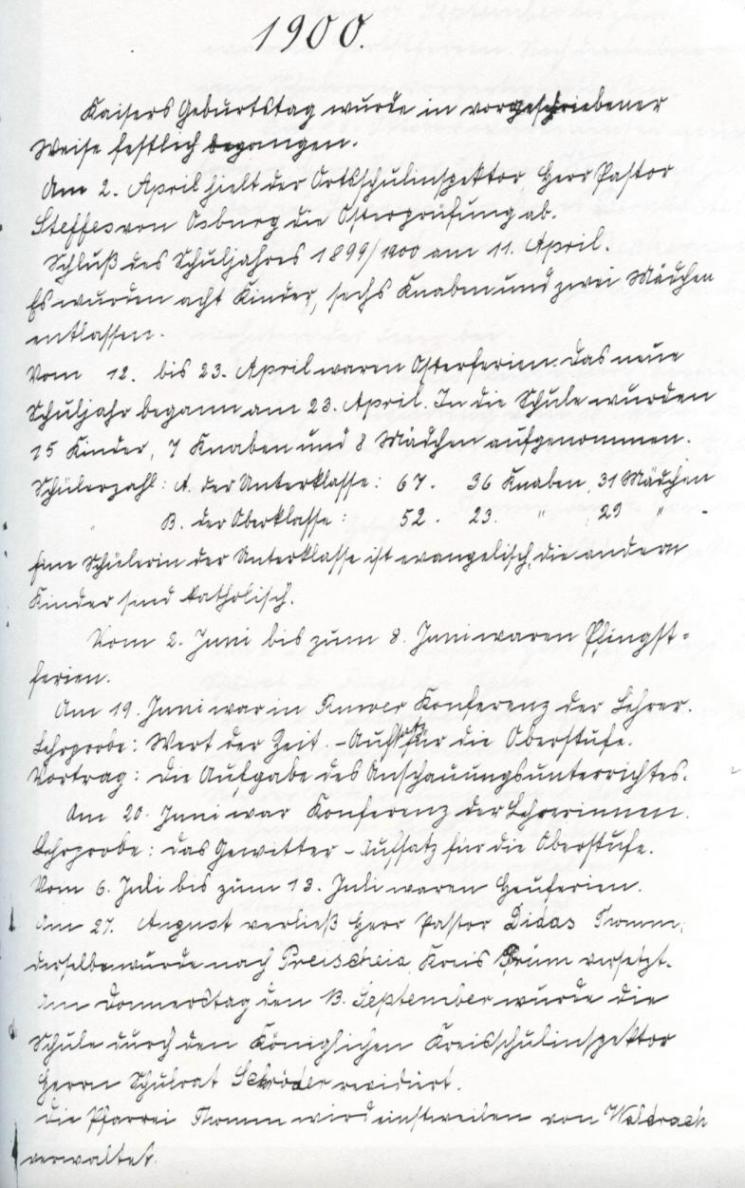 1900.
Kaisers Geburtstag wurde in vorgeschriebener
Weise festlich begangen.
Am 2. April hielt der Ortsschulinspektor Herr Pastor
Steffes von Osburg die Osterprüfung ab.
Schluß des Schuljahres 1899/1900 am 11. April.
Es wurden acht Kinder, sechs Knaben und zwei Mädchen
entlassen.
Vom 12. bis 23. April waren Osterferien. Das neue
Schuljahr begann am 23. April. In die Schule wurden
15 Kinder, 7 Knaben und 8 Mädchen aufgenommen.
Schülerzahl: A. der Unterklasse: 67. 36 Knaben, 31 Mädchen
B. der Oberklasse: 52. 23. " 29 "
Eine Schülerin der Unterklasse ist evangelisch, die andern
Kinder sind katholisch.
Vom 2. Juni bis zum 8. Juni waren Pfingst-
ferien.
Am 19. Juni war in Ruwer Konferenz der Lehrer.
Lehrprobe: Wert der Zeit. - Aufsatz für die Oberstufe.
Vortrag: Die Aufgabe des Anschauungsunterrichtes.
Am 20. Juni war Konferenz der Lehrerinnen.
Lehrprobe: Das Gewitter - Aufsatz für die Oberstufe.
Vom 6. Juli bis zum 13. Juli waren Heuferien.
Am 27. August verließ Herr Pastor Didas Thomm,
derselbe wurde nach Preischeid, Kreis Prüm versetzt.
Am Donnerstag den 13. September wurde die
Schule durch den Königlichen Kreisschulinspektor
Herrn Schulrat Schröder revidiert.
Die Pfarrei Thomm wird einstweilen von Waldrach
verwaltet.